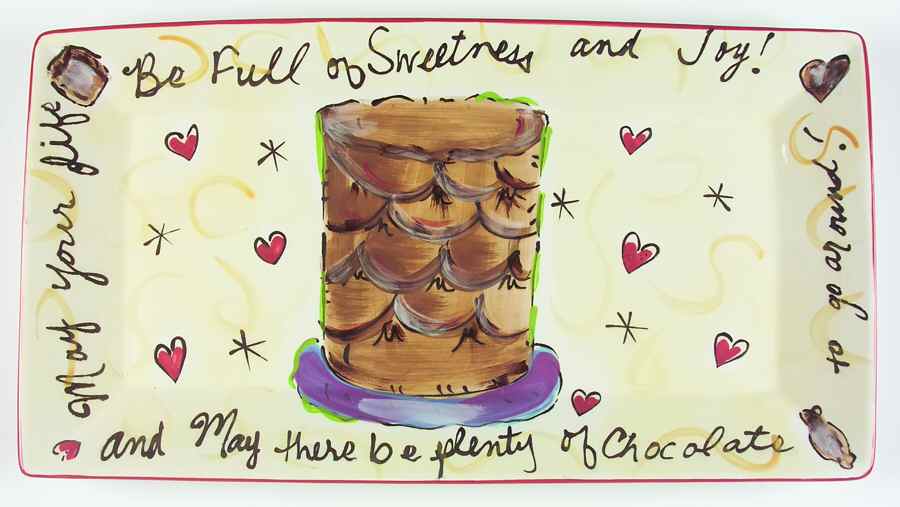 May your life
Be Full of Sweetness and Joy!
and May there be plenty of Chocolate
to go around!